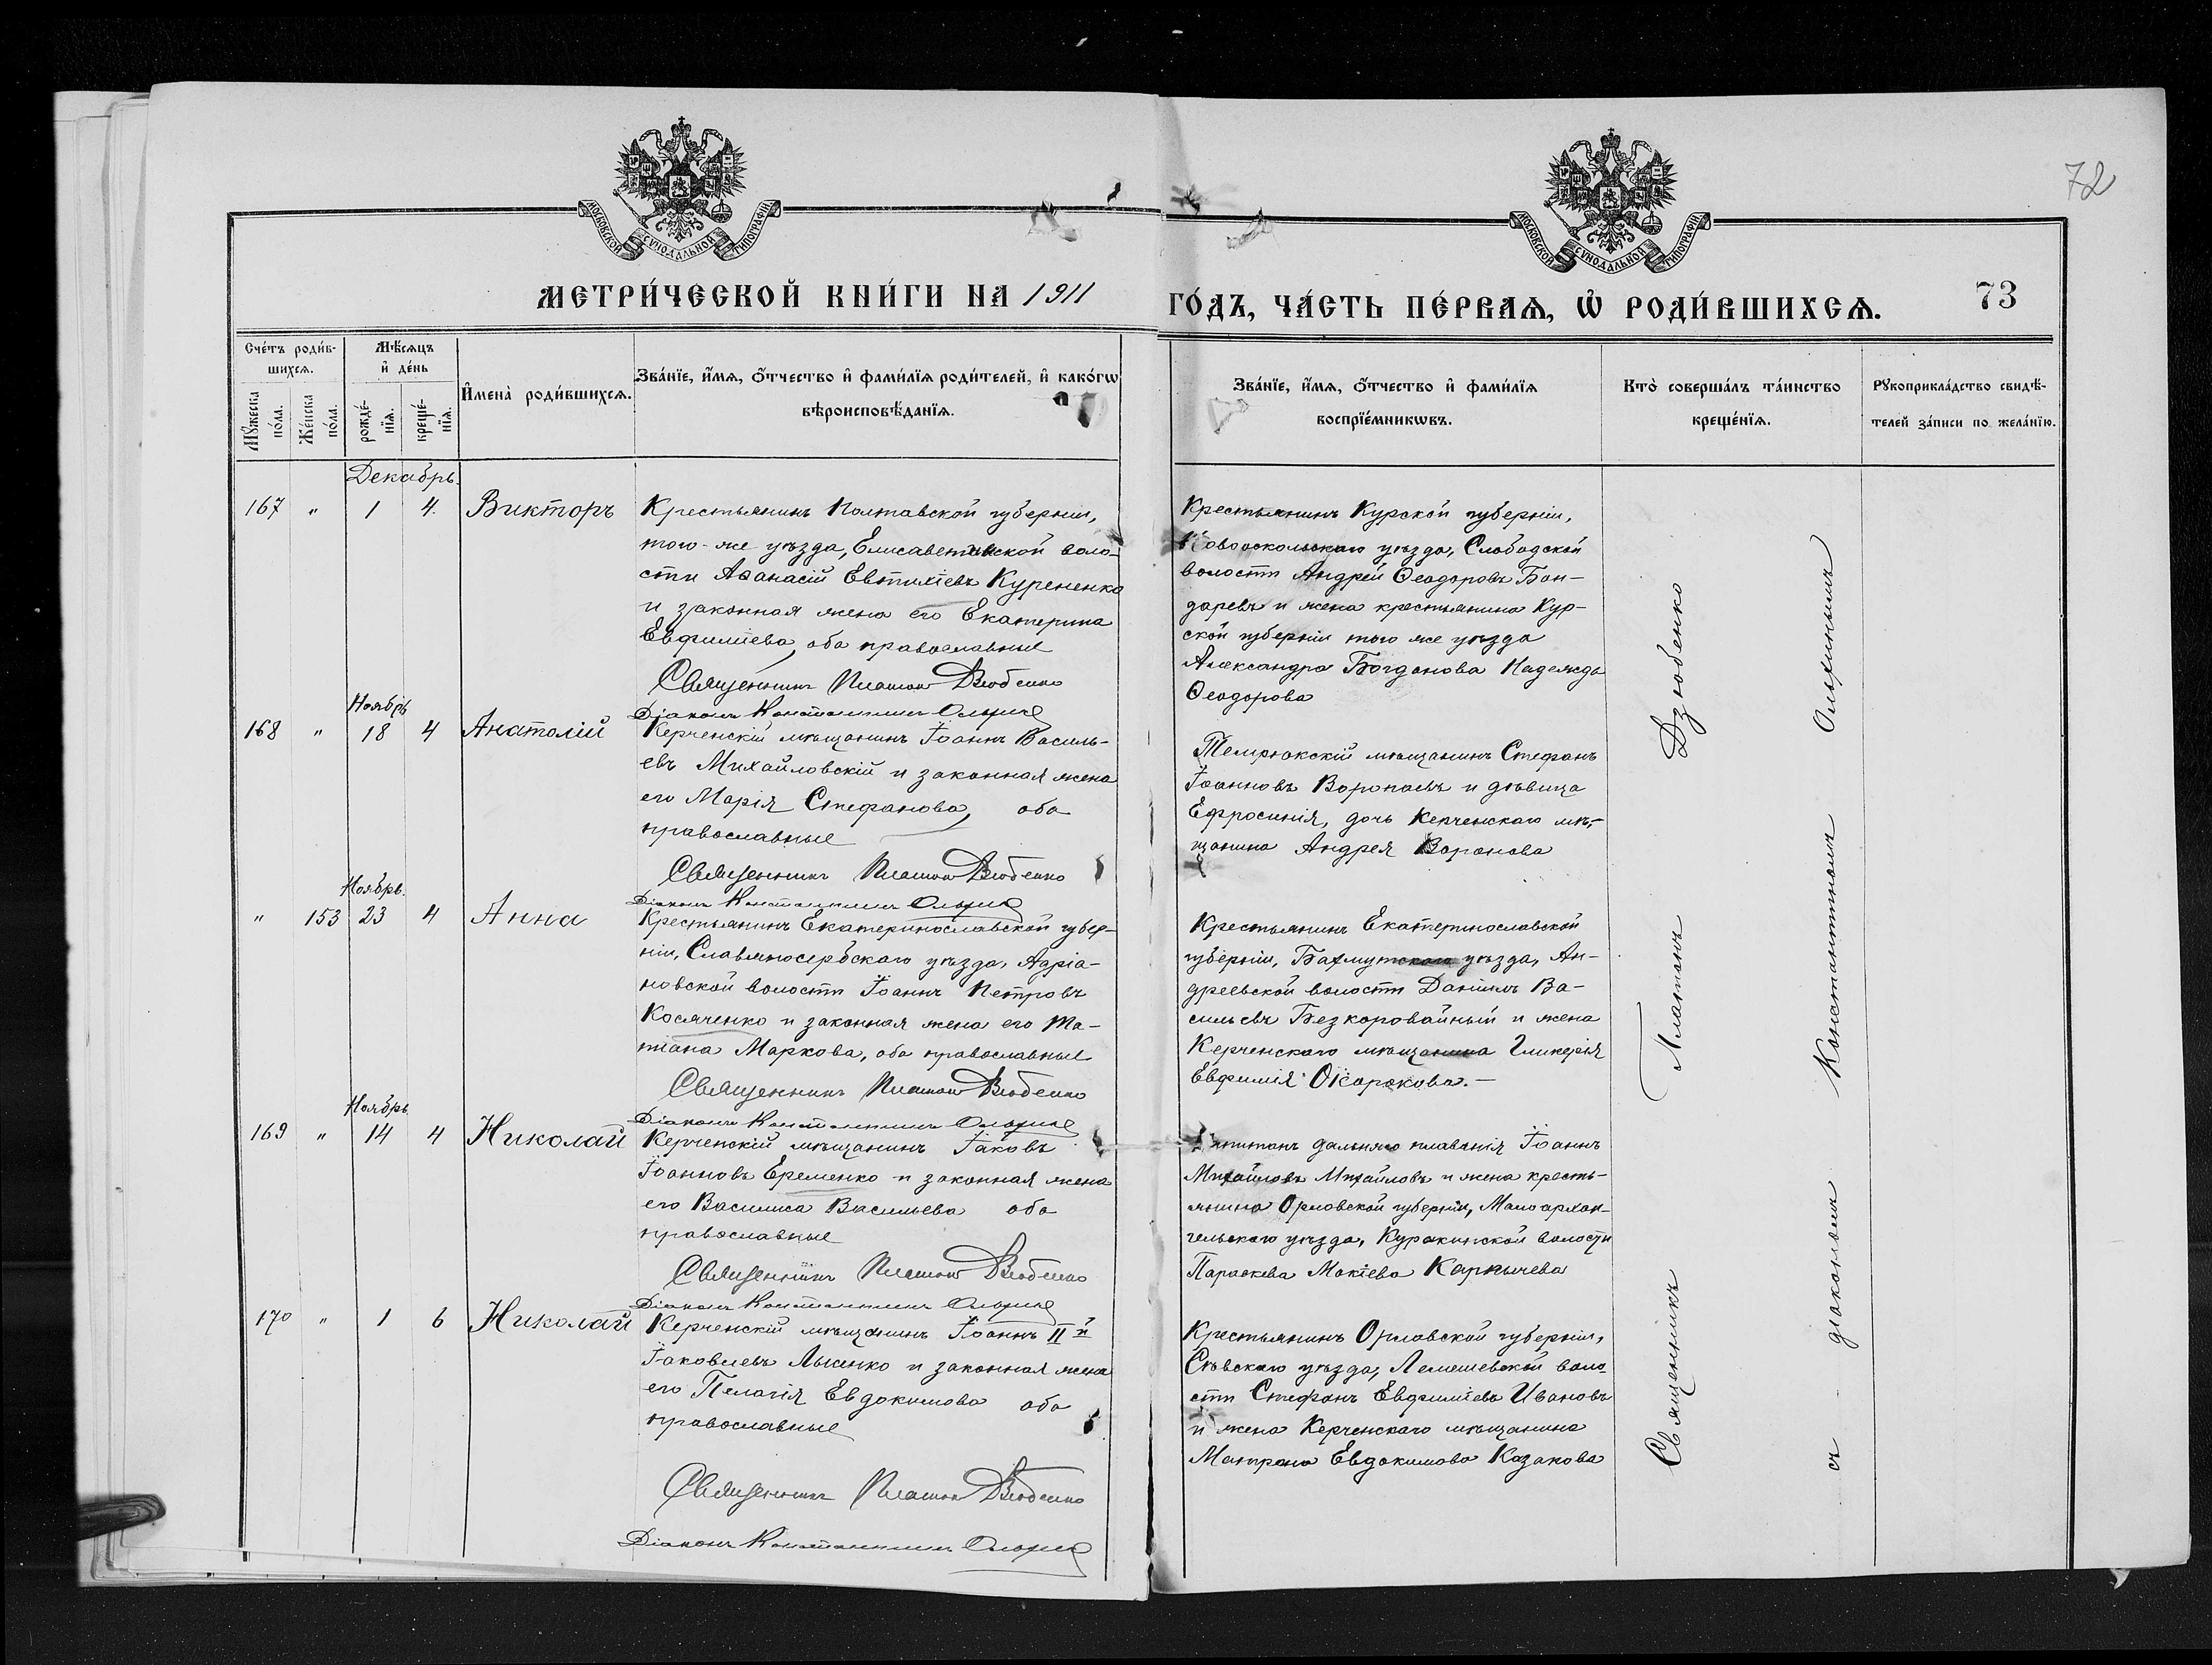 МОСКОВСКОЙ СѴНОДАЛЬНОЙ ТИПОГРАФІИ
МОСКОВСКОЙ СѴНОДАЛЬНОЙ ТИПОГРАФІИ
72
МЕТРИ́ЧЕСКОЙ КНИ́ГИ НА 1911
ГО́ДЪ, ЧА́СТЬ ПЕ́РВАѦ, Ѡ҆ РОДИ́ВШИХСѦ.
73
Сче́тъ роди́в-
шихсѧ.
Мꙋ́жеска
по́ла.
Же́нска
по́ла.
Мѣ́сѧцъ
и҆ де́нь
рожде́-
нїѧ.
креще́-
нїѧ.
И҆мена̀ роди́вшихсѧ.
Зва́нїе, и҆́мѧ, ѻ҆́тчество и҆ фами́лїѧ роди́телей, и҆ како́гѡ
вѣроисповѣ́данїѧ.
Зва́нїе, и҆́мѧ, ѻ҆́тчество и҆ фами́лїѧ
воспрїе́мникѡвъ.
Кто̀ соверша́лъ та́инство
креще́нїѧ.
Рꙋкоприкла́дство свидѣ́-
телей за́писи по жела́нїю.
Декабрь
167 " 1 4. Викторъ
Крестьянинъ Полтавской губерніи,
того-же уѣзда, Елисаветинской воло-
сти Аѳанасій Евтихіевъ Курененко
и законная жена его Екатерина
Евфиміева, оба православные
Священникъ Платонъ Дзюбенко
Діаконъ Константинъ
Крестьянинъ Курской губерніи,
Новооскольскаго уѣзда, Слободской
волости Андрей Ѳеодоровъ Бон-
даревъ и жена крестьянина Кур-
ской губерніи того же уѣзда
Александра Богданова Надежда
Ѳеодорова
Ноябрь
168 " 18 4 Анатолій
Керченскій мѣщанинъ Іоаннъ Василь-
евъ Михайловскій и законная жена
его Марія Стефанова, оба
православные
Священникъ Платонъ Дзюбенко
Діаконъ Константинъ
Темрюкскій мѣщанинъ Стефанъ
Іоанновъ Воропаевъ и дѣвица
Ефросинія, дочь Керченскаго мѣ-
щанина Андрея Воронова
Ноябрь.
" 153 23 4 Анна
Крестьянинъ Екатеринославской губер-
ніи, Славяносербскаго уѣзда, Адріа-
новской волости Іоаннъ Петровъ
Косяченко и законная жена его Та-
тіана Маркова, оба православные
Священникъ Платонъ Дзюбенко
Діаконъ Константинъ
Крестьянинъ Екатеринославской
губерніи, Бахмутскаго уѣзда, Ан-
дреевской волости Даніилъ Ва-
сильевъ Безкоровайный и жена
Керченскаго мѣщанина Гликерія
Евфимія Окорокова.—
Ноябрь
169 " 14 4 Николай
Керченскій мѣщанинъ Іаковъ
Іоанновъ Еременко и законная жена
его Василиса Васильева оба
православные
Священникъ Платонъ Дзюбенко
Діаконъ Константинъ
Капитанъ дальняго плаванія Іоаннъ
Михайловъ Михайловъ и жена кресть-
янина Орловской губерніи, Малоархан-
гельскаго уѣзда, Куракинской волости
Параскева Мокіева
170 " 1 6 Николай
Керченскій мѣщанинъ Іоаннъ II й
Іаковлевъ Лысенко и законная жена
его Пелагія Евдокимова оба
православные
Священникъ Платонъ Дзюбенко
Діаконъ Константинъ
Крестьянинъ Орловской губерніи,
Сѣвскаго уѣзда, Лемешевской воло-
сти Стефанъ Евфиміевъ Ивановъ
и жена Керченскаго мѣщанина
Матрона Евдокимова Казакова
Священникъ Платонъ Дзюбенко
съ діакономъ Константиномъ